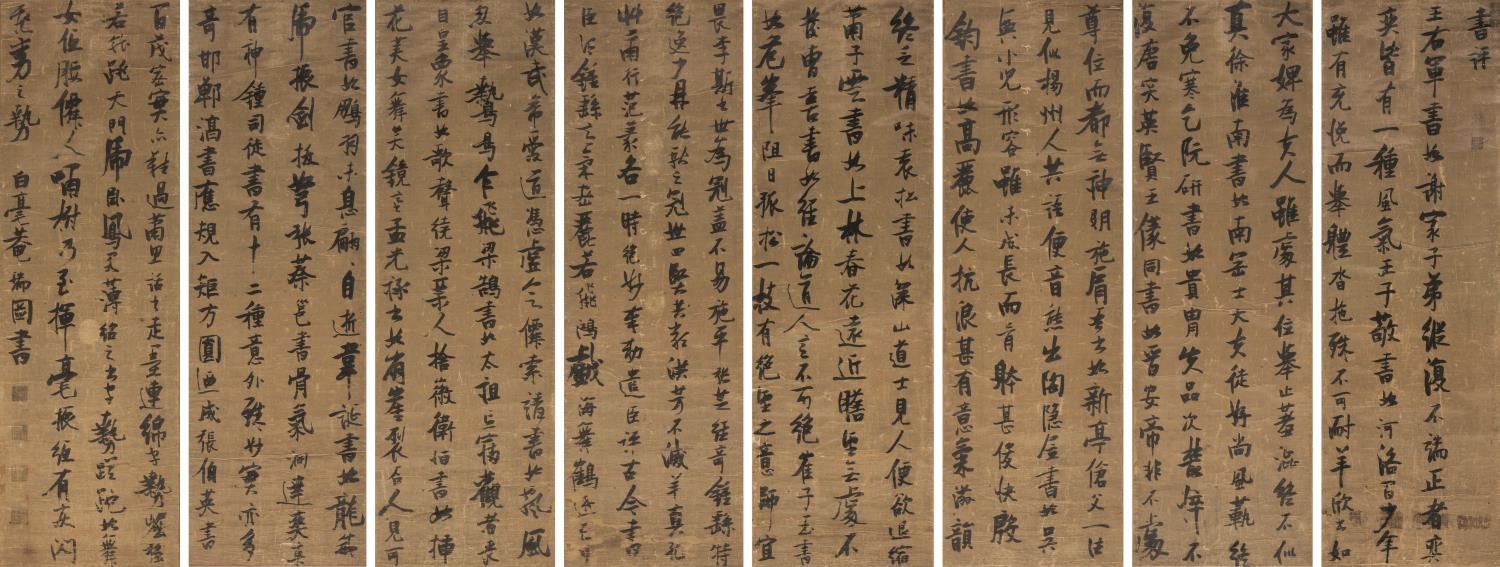 書評
王右軍書如謝家子弟縱復不端正者爽
奕皆有一種風氣王子敬書如河洛間少年
雖有充悅而舉體沓拖殊不可耐羊欣書如
大家婢為夫人雖處其位舉止羞澀終不似
真徐淮南書如南岡士大夫徒好尚風軌終
不免寒乞阮研書如貴冑失品次叢悴不
復唐突英賢王儀同書如晉安帝非不處
尊位而都無神明施肩吾書如新亭傖父一往
見似楊州人共語便音態出陶隱居書如吳
興小兒形容雖未成長而骨躰甚俊快殷
鈞書如高麗使人抗浪甚有意氣滋韻
終乏精味袁崧書如深山道士見人便欲退縮
蕭子雲書如上林春花遠近瞻望無處不
發曹喜書如經論道人言不可絕崔子玉書
如危峯阻日孤松一枝有絕望之意師宜
畏李斯書世為冠蓋不易施平張芝經奇鍾繇特
絕逸少鼎能獻之冠世四賢共類洪芳不滅羊真孔
艸蕭行范篆各一時絕妙奉勅遣臣評古今書
臣謂鍾繇意氣密麗若飛鴻戲海舞鶴遊天
如漢武帝愛道憑虛欲僊索靖書如飄風
忽舉鷙鳥乍飛梁鵠書如太祖忘寢觀者喪
目皇象書如歌聲繞梁琴人捨徽衛恒書如插
花美女舞笑鏡臺孟光祿書如崩崖裂谷人見可
官書如鵬羽未息翩翩自逝韋誕書如龍威
虎振劍拔弩張蔡邕書骨氣洞達爽爽
有神鍾司徒書有十二種意外殊妙實亦多
奇邯鄲淳書應規入矩方圓迺成張伯英書
百茂宏實亦難過蕭思話書走墨連綿字勢屈強
若龍跳天門虎臥鳳閣薄紹之書字勢蹉跎如舞
女低腰僊人嘯樹乃至揮毫振紙有疾閃
飛動之勢 白毫菴瑞圖書